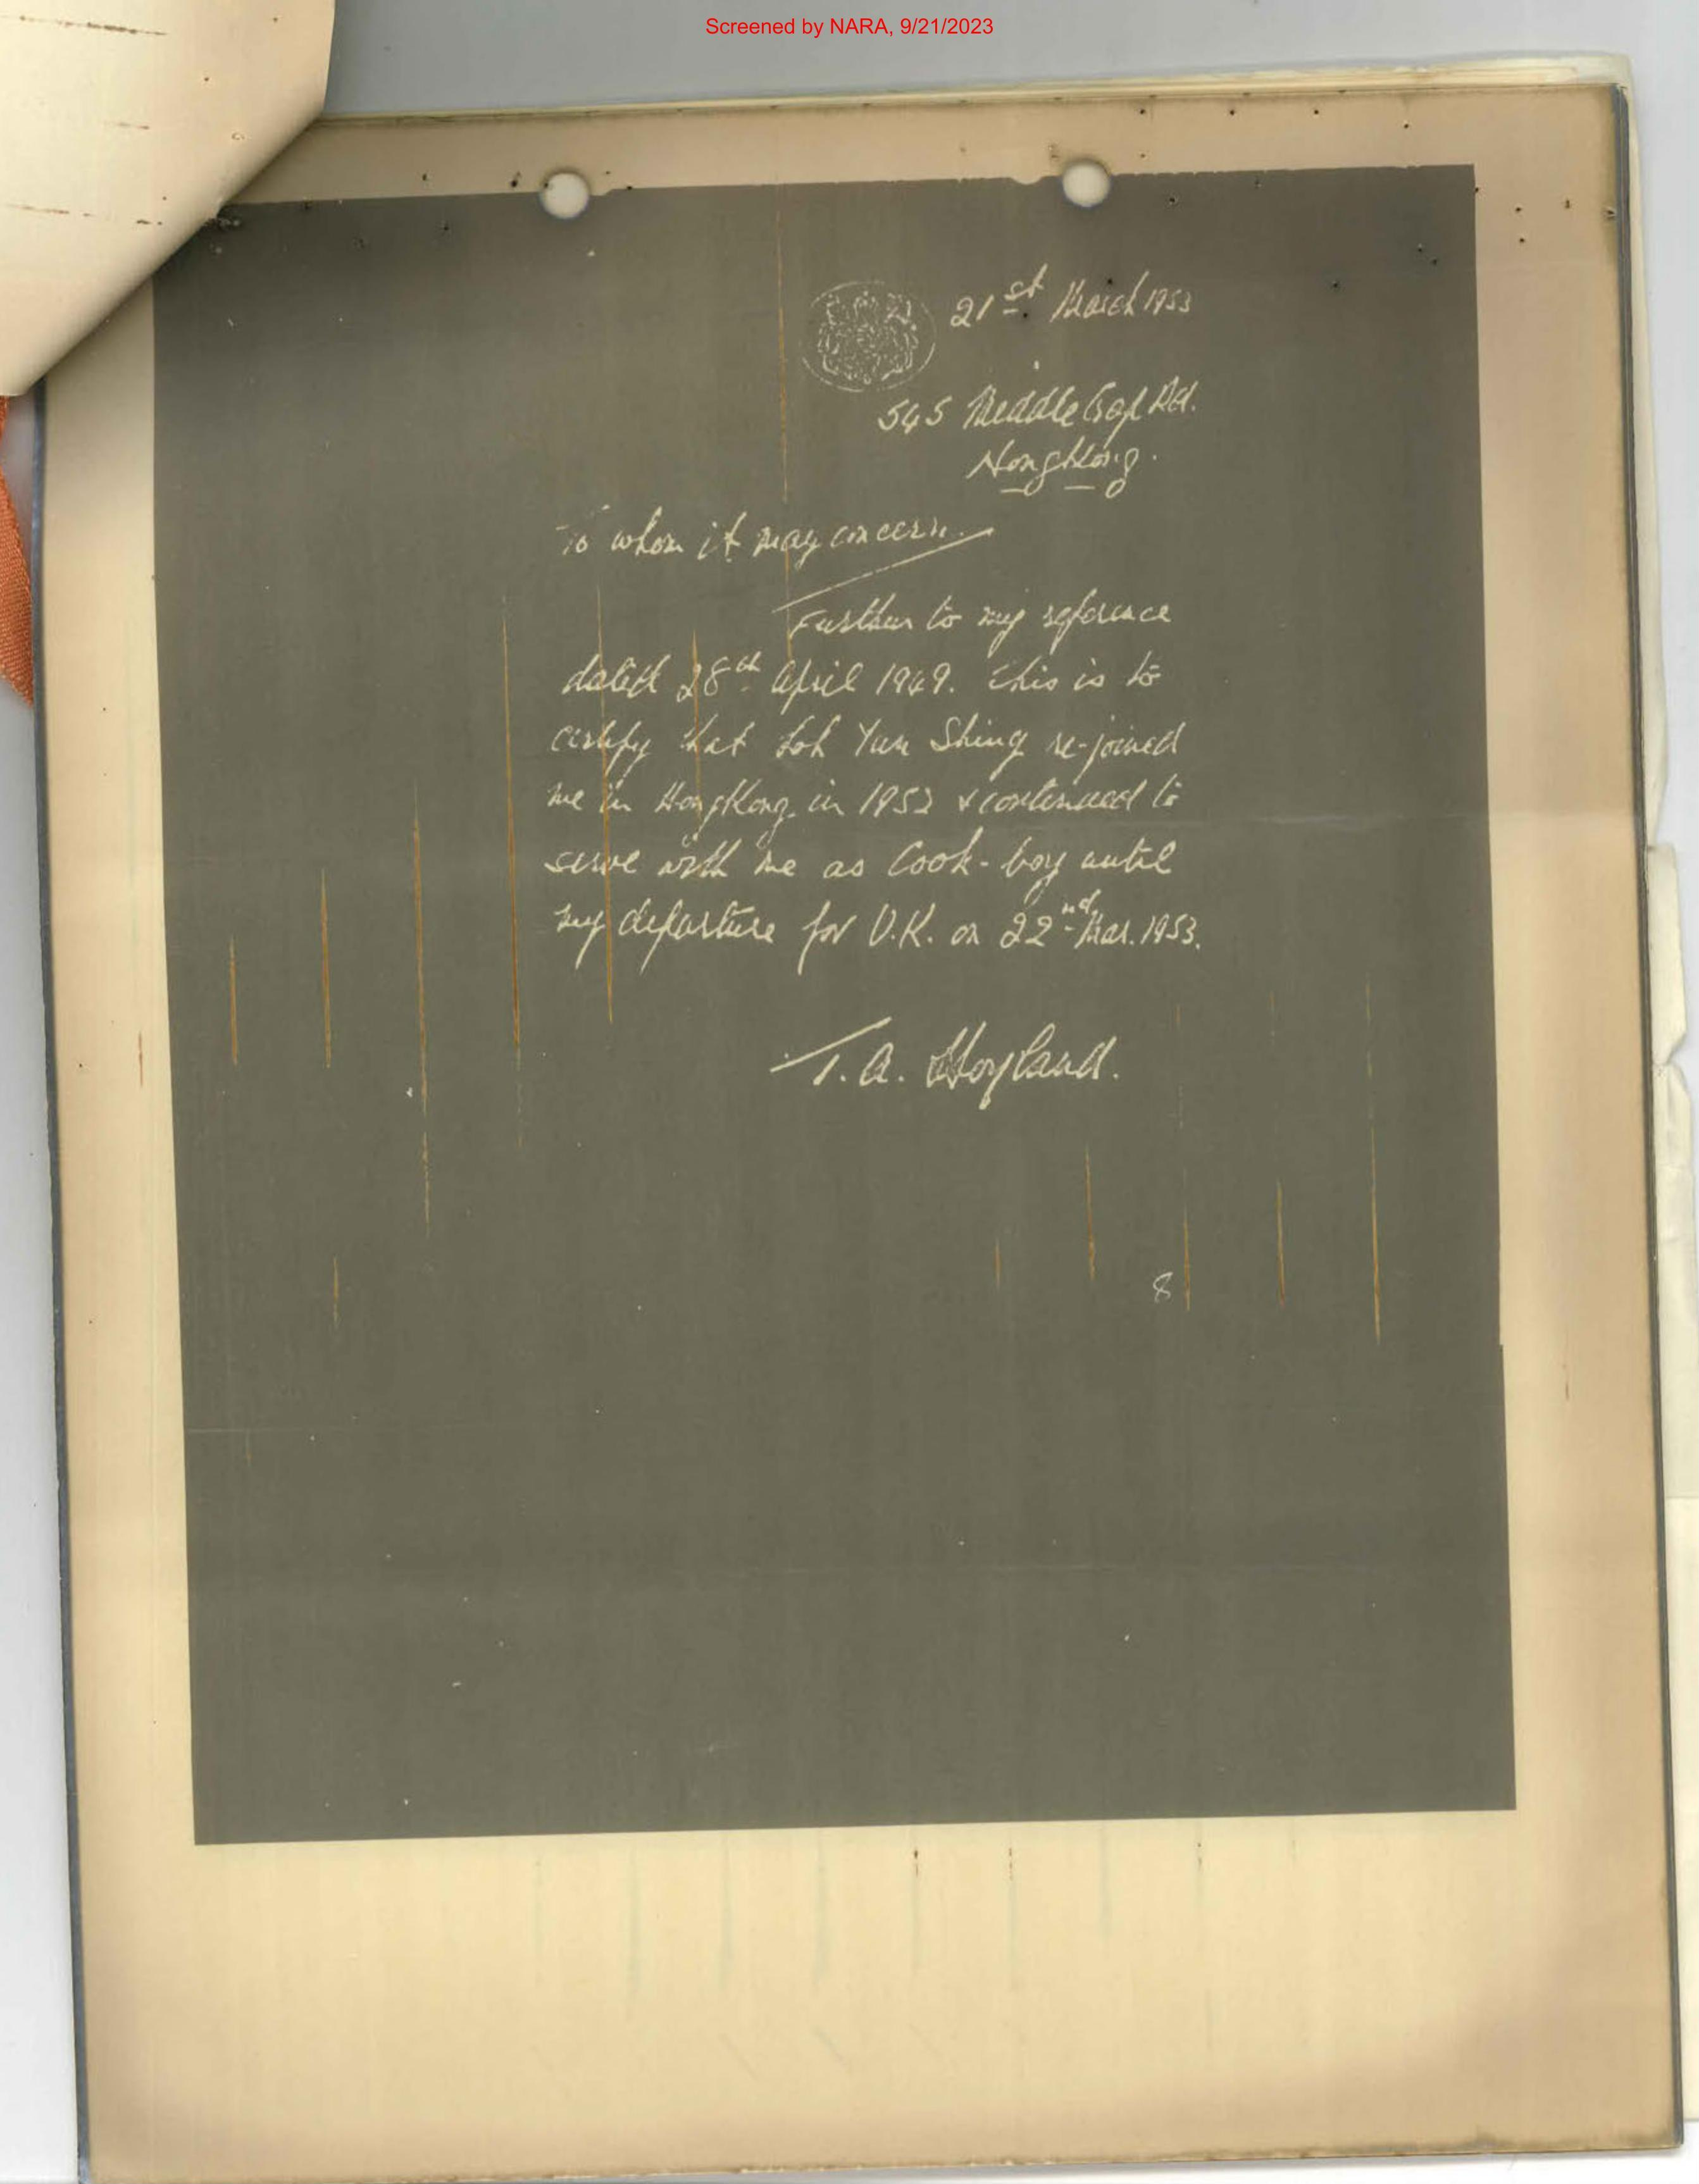 Screened by NARA, 9/21/2023
21st March 1953
545 Middle Gap Rd.
HongKong.
To whom it may concern.
Further to my reference
dated 28th April 1949. This is to
certify that Loh Yun Shing re-joined
me in HongKong in 1952 & continued to
serve with me as Cook-boy until
my departure for U.K. on 22nd Mar. 1953.
T.A. Hoyland.
8